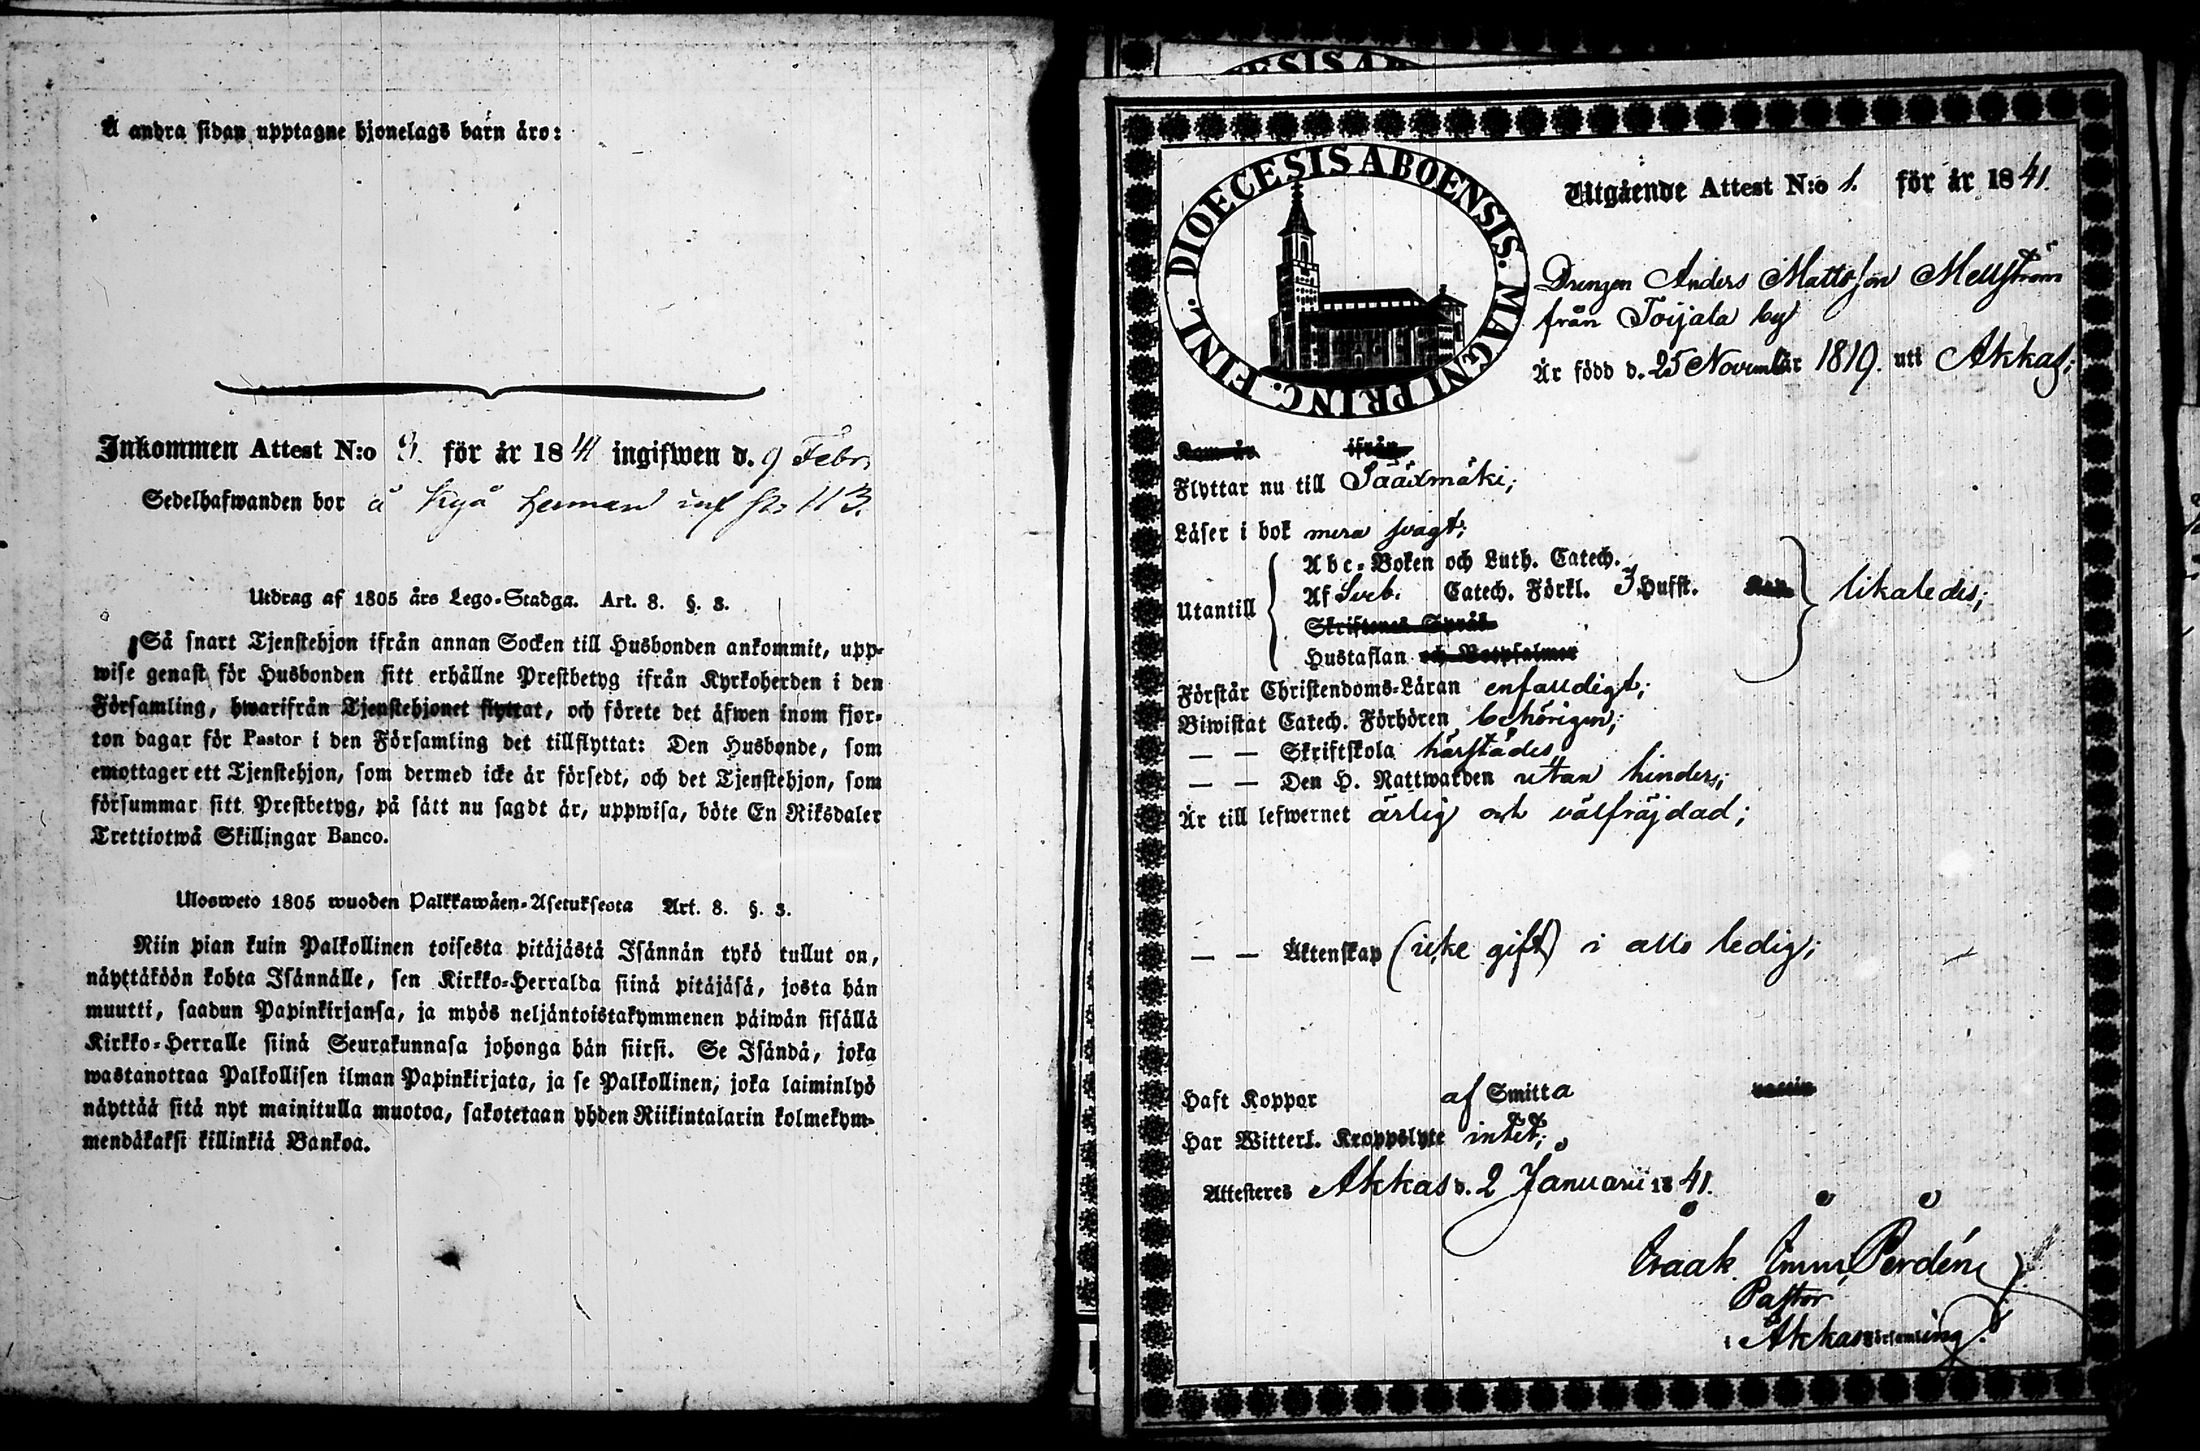 Å andra sidan upptagne hjonelags barn äro:
Inkommen Attest N:o 3. för år 1841 ingifwen d. 9 Febr.
Sedelhafwanden bor å
Utdrag af 1805 års Lego-Stadga. Art. 8. §. 3.
Så snart Tjenstehjon ifrån annan Socken till Husbonden ankommit, upp-
wise genast för Husbonden sitt erhållne Prestbetyg ifrån Kyrkoherden i den
Församling, hwarifrån Tjenstehjonet flyttat, och förete det äfwen inom fjor-
ton dagar för Pastor i den Församling det tillflyttat: Den Husbonde, som
emottager ett Tjenstehjon, som dermed icke är försedt, och det Tjenstehjon, som
försummar sitt Prestbetyg, på sätt nu sagdt är, uppwisa, böte En Riksdaler
Trettiotwå Skillingar Banco.
Ulosweto 1805 wuoden Palkkawäen-Asetuksesta Art. 8. §. 3.
Niin pian kuin Palkollinen toisesta pitäjästä Isännän tykö tullut on,
näyttäköön kohta Isännälle, sen Kirkko-Herralda siinä pitäjäsä, josta hän
muutti, saadun Papinkirjansa, ja myös neljäntoistakymmenen päiwän sisällä
Kirkko-Herralle siinä Seurakunnasa johonga hän siirsi. Se Isändä, joka
wastanottaa Palkollisen ilman Papinkirjata, ja se Palkollinen, joka laiminlyö
näyttää sitä nyt mainitulla muotoa, sakotetaan yhden Riikintalarin kolmekym-
mendäkaksi killinkiä Bankoa.
DIOECESIS ABOENSIS. MAGNI PRINC. FINL.
Utgående Attest N:o 1. för år 1841.
Drengen Anders Mattsson Mellström
från Toijala by
Är född d. 25 November 1819. uti Akkas;
Kom år ifrån
Flyttar nu till Sääxmäki;
Läser i bok mera svagt;
Abc-Boken och Luth. Catech.
Utantill Af Sveb. Catech. Förkl. 3 Hufst. likaledes;
Skriftenes Språk
Hustaflan och Botpsalmer
Förstår Christendoms-Läran enfaldigt;
Biwistat Catech. Förhören behörigen;
— — Skriftskola härstädes
— — Den H. Nattwarden utan hinder;
Är till lefwernet ärlig och välfräjdad;
— — Äktenskap (icke gift) i alls ledig;
Haft Koppor af Smitta vaccin
Har Witterl. Kroppslyte intet;
Attesteres Akkas d. 2 Januarii 1841.
Isaak Imm. Perdén
Pastor
i Akkas församling.